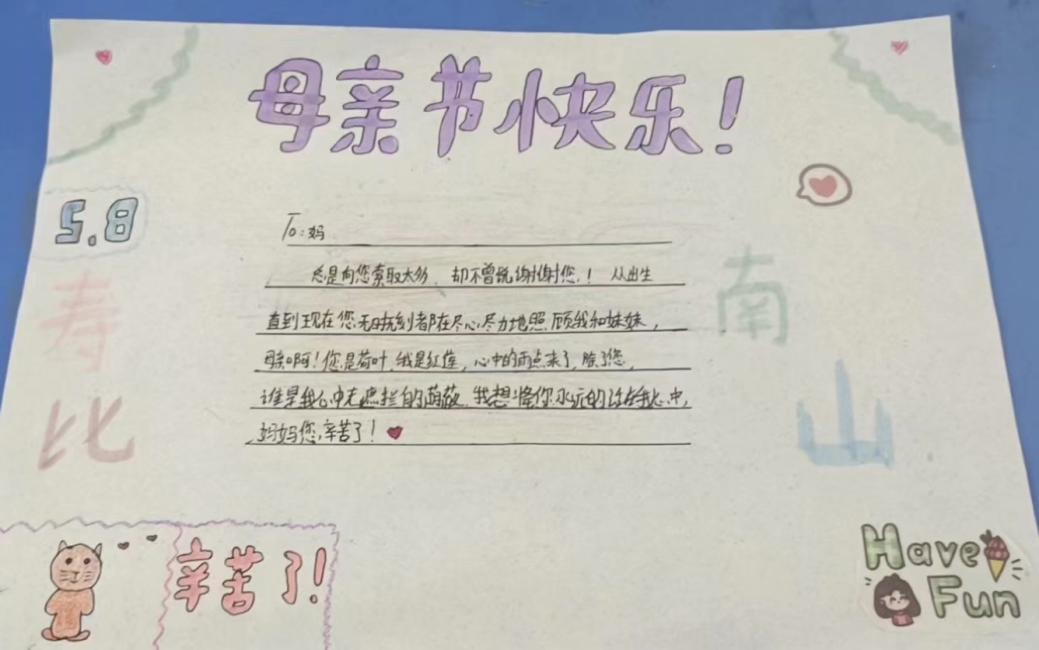 母亲节快乐!
5.8
寿比
南山
To:妈
总是向您索取太多、却不曾说谢谢您!从出生
直到现在您无时无刻都在尽心尽力地照顾我和妹妹,
母亲啊!您是荷叶,我是红莲,心中的雨点来了,除了您,
谁是我心中无遮拦的荫蔽.我想将你永远的 我心中,
妈妈您,辛苦了!
辛苦了!
Have
Fun